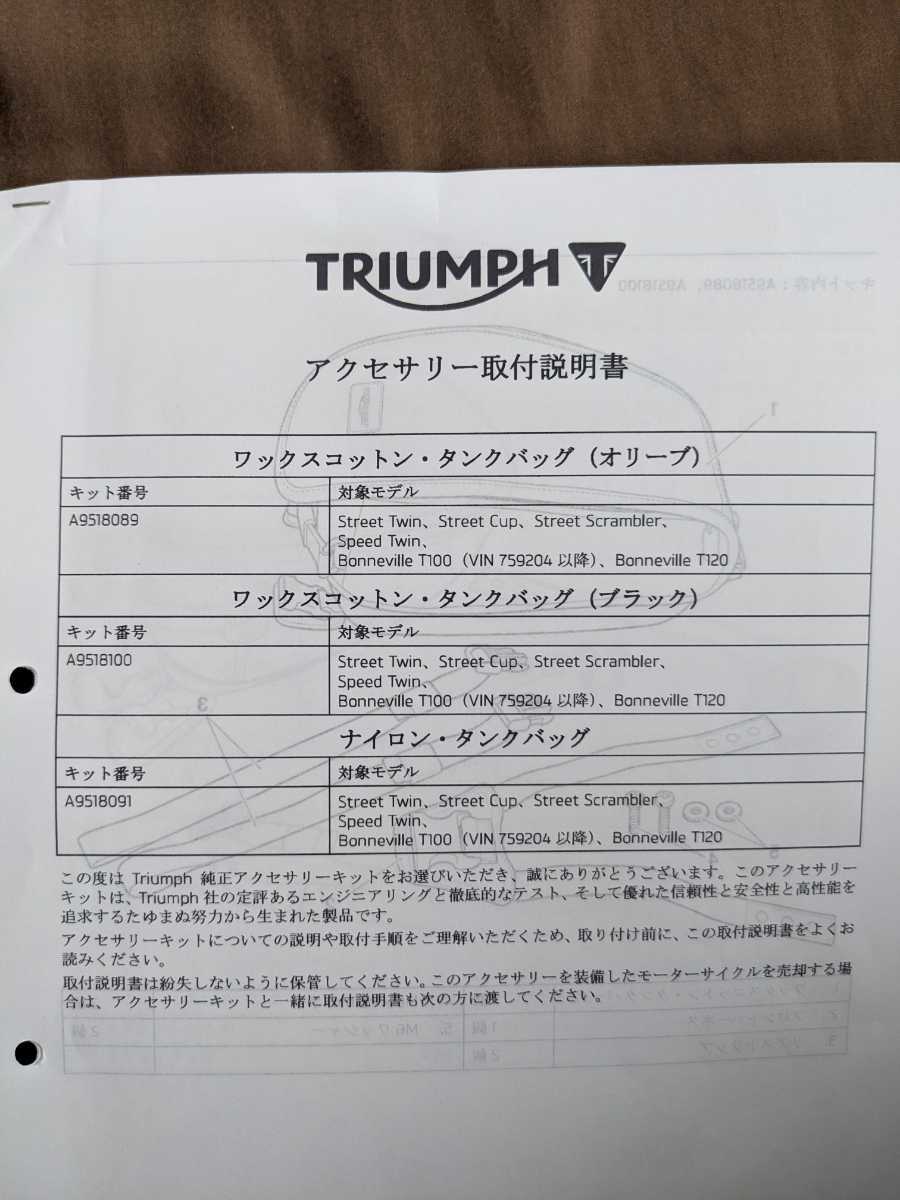 TRIUMPH
キット内容：A9518089、A9518100
アクセサリー取付説明書
1
ワックスコットン・タンクバッグ（オリーブ）
キット番号 対象モデル
A9518089 Street Twin、Street Cup、Street Scrambler、
Speed Twin、
Bonneville T100（VIN 759204 以降）、Bonneville T120
ワックスコットン・タンクバッグ（ブラック）
キット番号 対象モデル
A9518100 Street Twin、Street Cup、Street Scrambler、
Speed Twin、
Bonneville T100（VIN 759204 以降）、Bonneville T120
3
ナイロン・タンクバッグ
キット番号 対象モデル
A9518091 Street Twin、Street Cup、Street Scrambler、
Speed Twin、
Bonneville T100（VIN 759204 以降）、Bonneville T120
この度は Triumph 純正アクセサリーキットをお選びいただき、誠にありがとうございます。このアクセサリー
キットは、Triumph 社の定評あるエンジニアリングと徹底的なテスト、そして優れた信頼性と安全性と高性能を
追求するたゆまぬ努力から生まれた製品です。
アクセサリーキットについての説明や取付手順をご理解いただくため、取り付け前に、この取付説明書をよくお
読みください。
取付説明書は紛失しないように保管してください。このアクセサリーを装備したモーターサイクルを売却する場
合は、アクセサリーキットと一緒に取付説明書も次の方に渡してください。
2. フロントハーネス 1個 5. M6 ワッシャー 2個
3. 2個